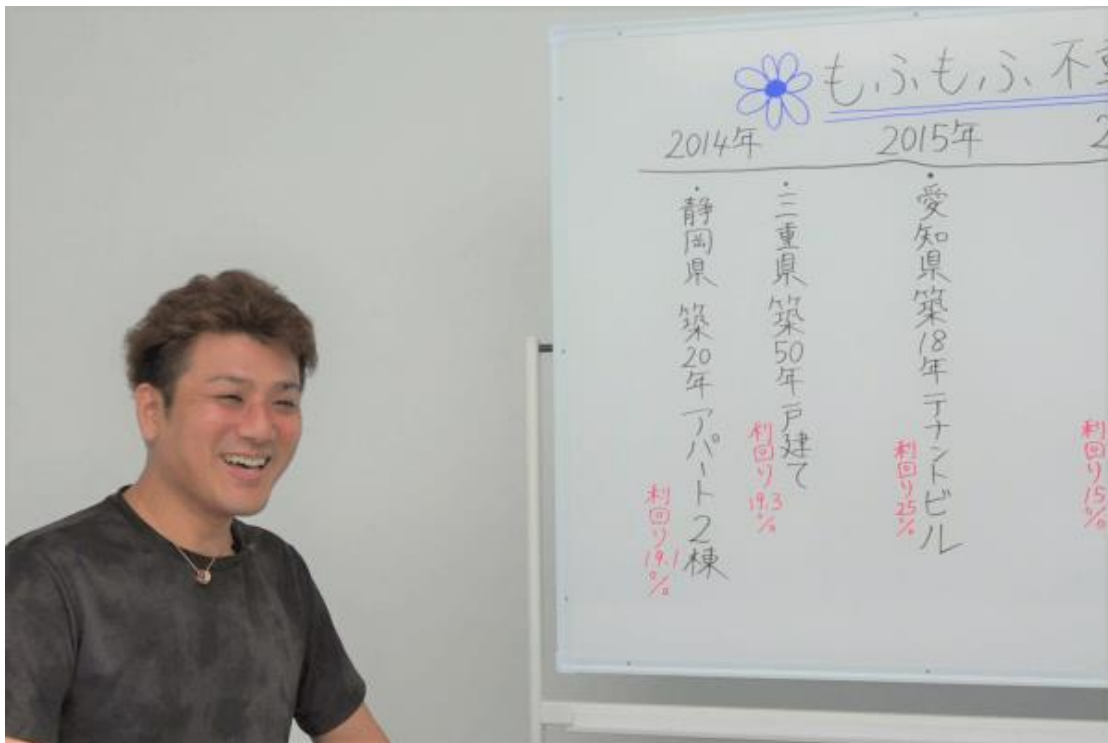 もふもふ不動
2014年
2015年
2
・静岡県 築20年アパート2棟
利回り19.1%
・三重県 築50年戸建て
利回り19.3%
・愛知県築18年テナントビル
利回り25%
利回り15%